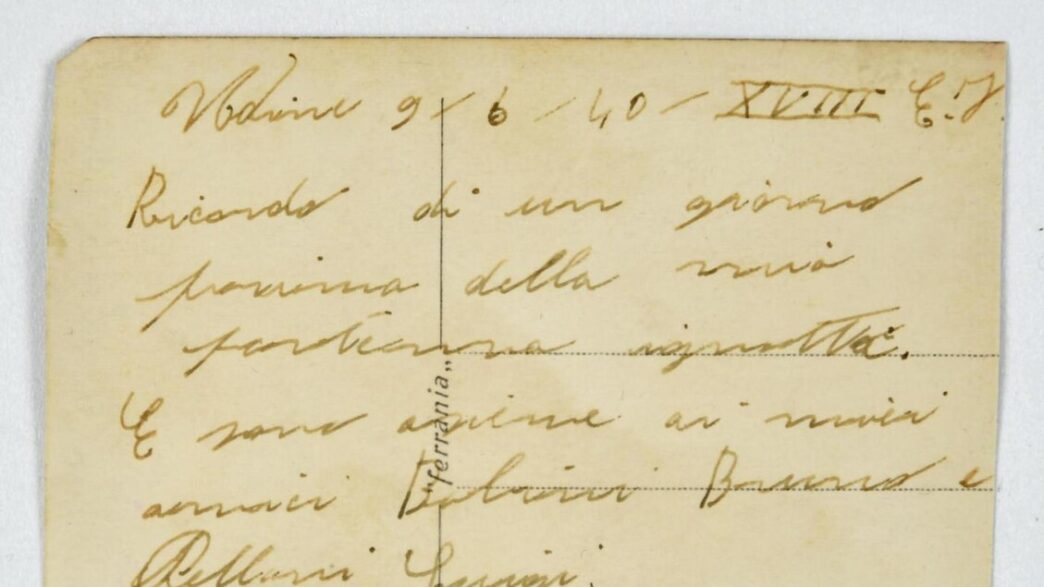 Udine 9/6/40 - XVIII E.F.
Ricordo di un giorno
prima della mia
partenna ignotta.
E sono asieme ai miei
amici Bruno e
Luigi.
"ferrania"